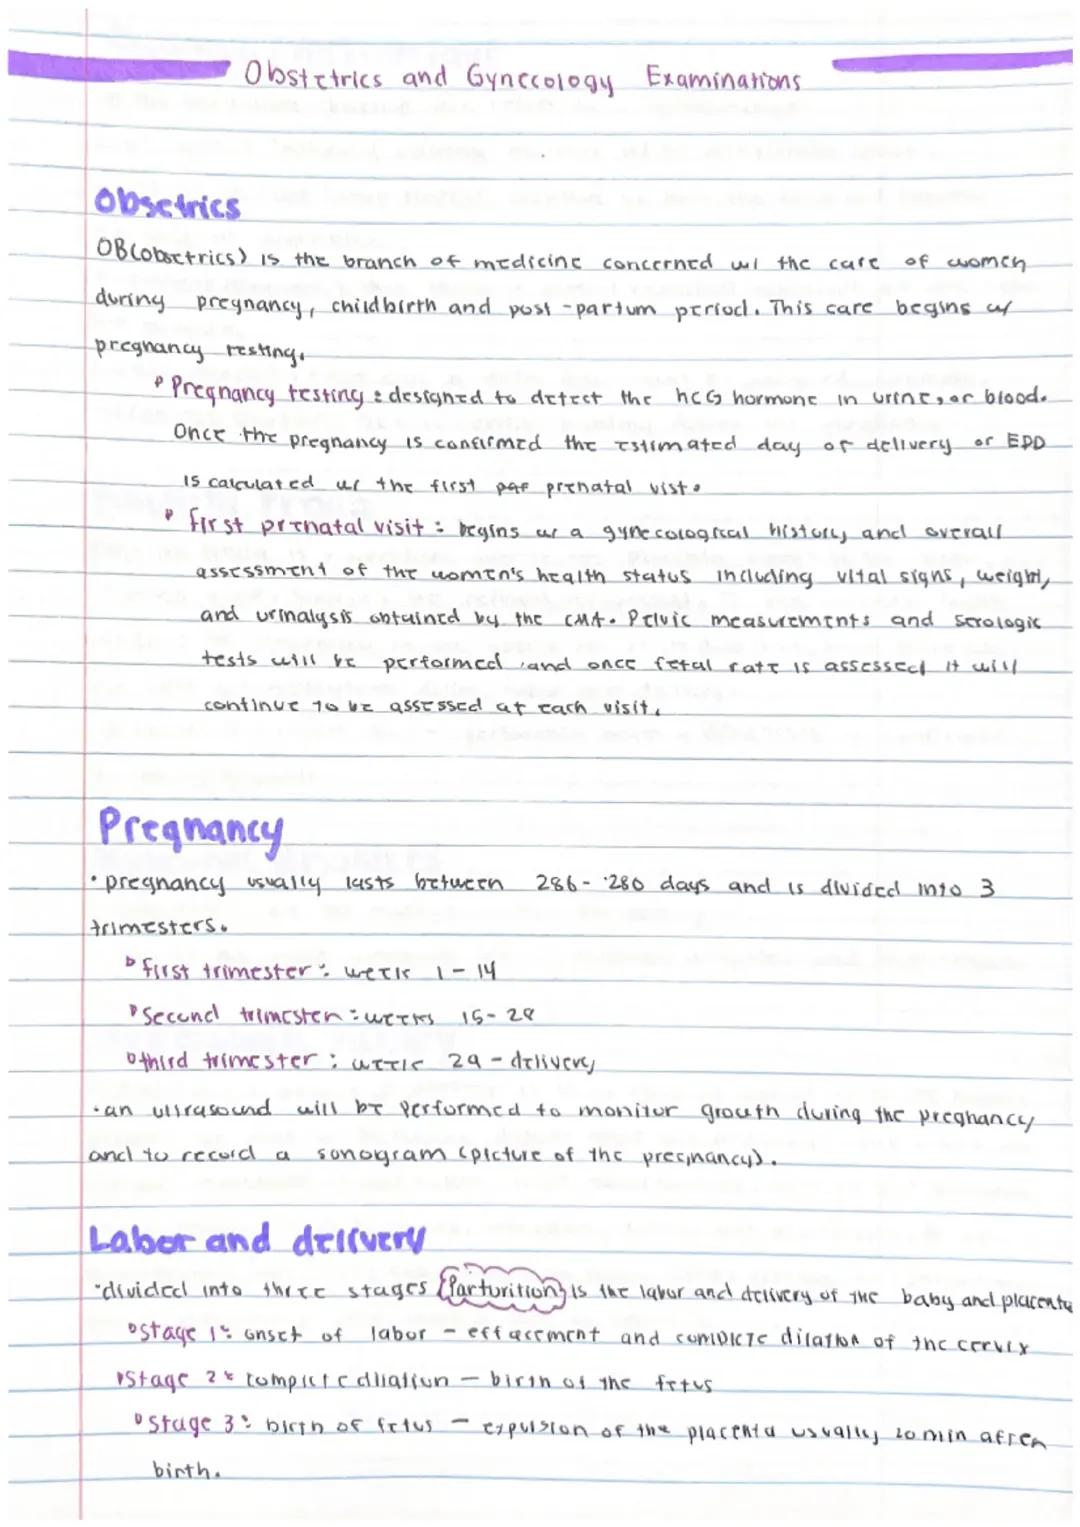 Obstetrics and Gynecology Examinations
Obsetrics
OB(obsetrics) is the branch of medicine concerned w/ the care of women
during pregnancy, childbirth and post-partum period. This care begins w/
pregnancy testing.
Pregnancy testing: designed to detect the hCG hormone in urine, or blood.
Once the pregnancy is confirmed the estimated day of delivery or EDD
is calculated w/ the first prenatal vist.
first prenatal visit: begins w/ a gynecological history and overall
assessment of the women's health status including vital signs, weight,
and urinalysis obtained by the CMA. Pelvic measurements and serologic
tests will be performed, and once fetal rate is assessed it will
continue to be assessed at each visit.
Pregnancy
• pregnancy usually lasts between 286-280 days and is divided into 3
trimesters.
first trimester: week 1-14
Second trimester: weeks 15-28
third trimester: week 29-delivery
• an ultrasound will be performed to monitor growth during the pregnancy
and to record a sonogram (picture of the pregnancy).
Labor and delivery
• divided into three stages Parturition is the labor and delivery of the baby and placenta
Stage 1: onset of labor - effacement and complete dilation of the cervix
Stage 2: complete dilation - birth of the fetus
Stage 3: birth of fetus - expulsion of the placenta usually 20 min after
birth.